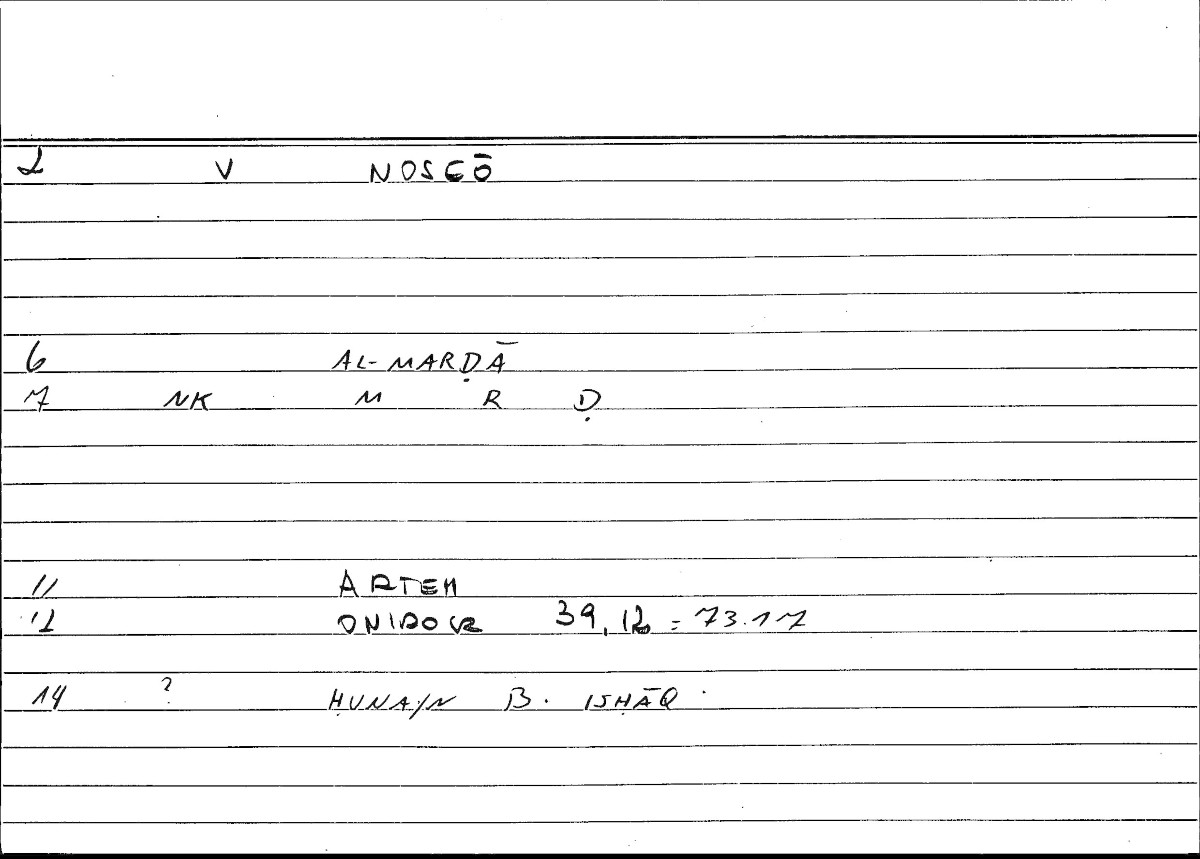 2 V NOSEŌ
6 AL-MARḌĀ
7 NK M R Ḍ
11 ARTEM
12 ONIROCR 39,12 = 73.17
14 ? ḤUNAIN B. ISḤĀQ